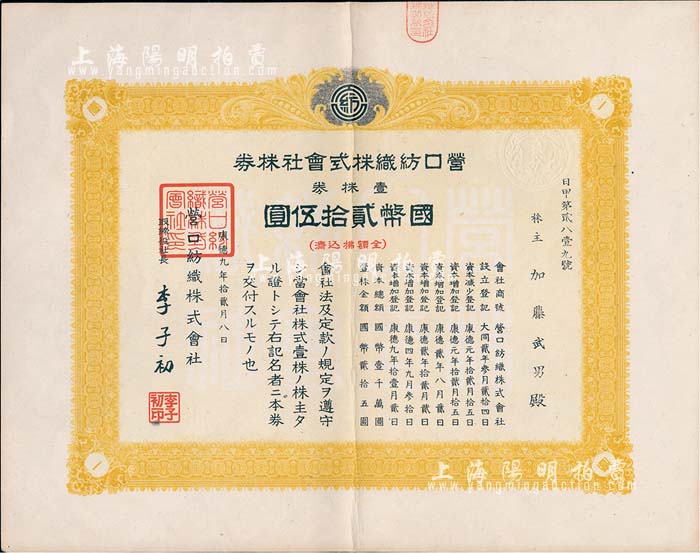 上海陽明拍賣
www.yangmingauction.com
紡
營口紡織株式會社株券
壹株券
國幣貳拾伍圓
(全額拂込濟)
日甲第貳八壹九號
株主 加藤武男殿
會社商號 營口紡織株式會社
設立登記 大同貳年參月貳拾四日
資本減少登記 康德元年拾貳月拾五日
資本增加登記 康德元年拾貳月拾五日
資本增加登記 康德貳年八月貳日
資本增加登記 康德貳年拾貳月貳日
資本增加登記 康德四年九月參拾日
資本增加登記 康德九年拾壹月貳日
資本總額 國幣壹千萬圓
壹株金額 國幣貳拾五圓
會社法及定款ノ規定ヲ遵守
シ當會社株式壹株ノ株主タ
ル證トシテ右記名者ニ本券
ヲ交付スルモノ也
康德九年拾貳月八日
營口紡織株式會社
取締役社長 李子初
營口紡織株式會社印
李子初印
上海陽明拍賣
www.yangmingauction.com